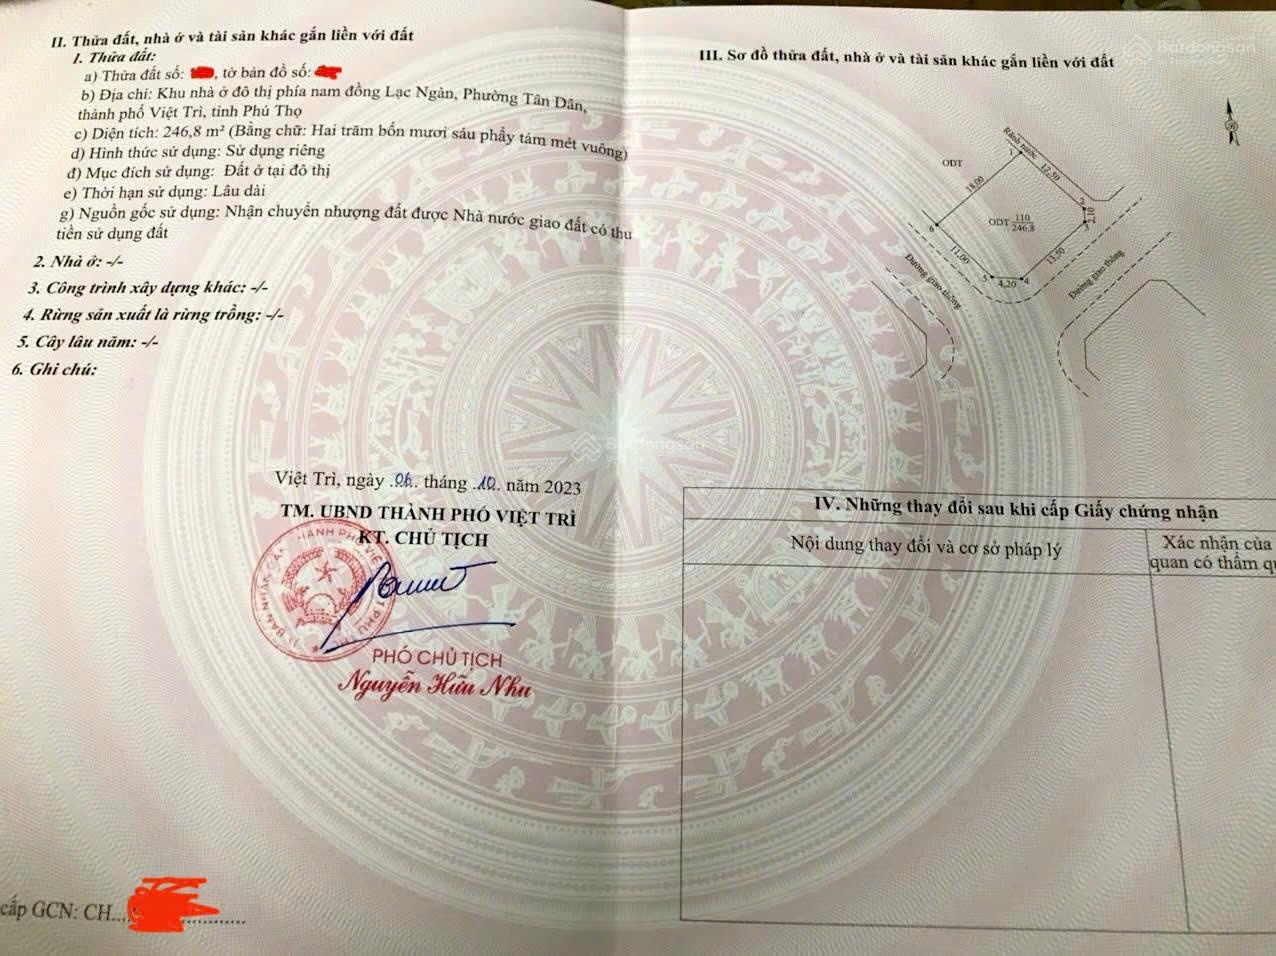 II. Thửa đất, nhà ở và tài sản khác gắn liền với đất
1. Thửa đất:
a) Thửa đất số: , tờ bản đồ số:
b) Địa chỉ: Khu nhà ở đô thị phía nam đồng Lạc Ngàn, Phường Tân Dân,
thành phố Việt Trì, tỉnh Phú Thọ
c) Diện tích: 246,8 m² (Bằng chữ: Hai trăm bốn mươi sáu phẩy tám mét vuông)
d) Hình thức sử dụng: Sử dụng riêng
đ) Mục đích sử dụng: Đất ở tại đô thị
e) Thời hạn sử dụng: Lâu dài
g) Nguồn gốc sử dụng: Nhận chuyển nhượng đất được Nhà nước giao đất có thu
tiền sử dụng đất
2. Nhà ở: -/-
3. Công trình xây dựng khác: -/-
4. Rừng sản xuất là rừng trồng: -/-
5. Cây lâu năm: -/-
6. Ghi chú:
Việt Trì, ngày .06. tháng .10. năm 2023
TM. UBND THÀNH PHỐ VIỆT TRÌ
KT. CHỦ TỊCH
PHÓ CHỦ TỊCH
Nguyễn Hữu Nhu
cấp GCN: CH....
III. Sơ đồ thửa đất, nhà ở và tài sản khác gắn liền với đất
Batdongsan
by PropertyGuru
Rãnh nước
ODT
1
12,50
18,00
2
2,10
3
ODT 110
246,8
6
11,00
13,50
5
4,20
4
Đường giao thông
Đường giao thông
Batdongsan
IV. Những thay đổi sau khi cấp Giấy chứng nhận
Nội dung thay đổi và cơ sở pháp lý
Xác nhận của
quan có thẩm qu